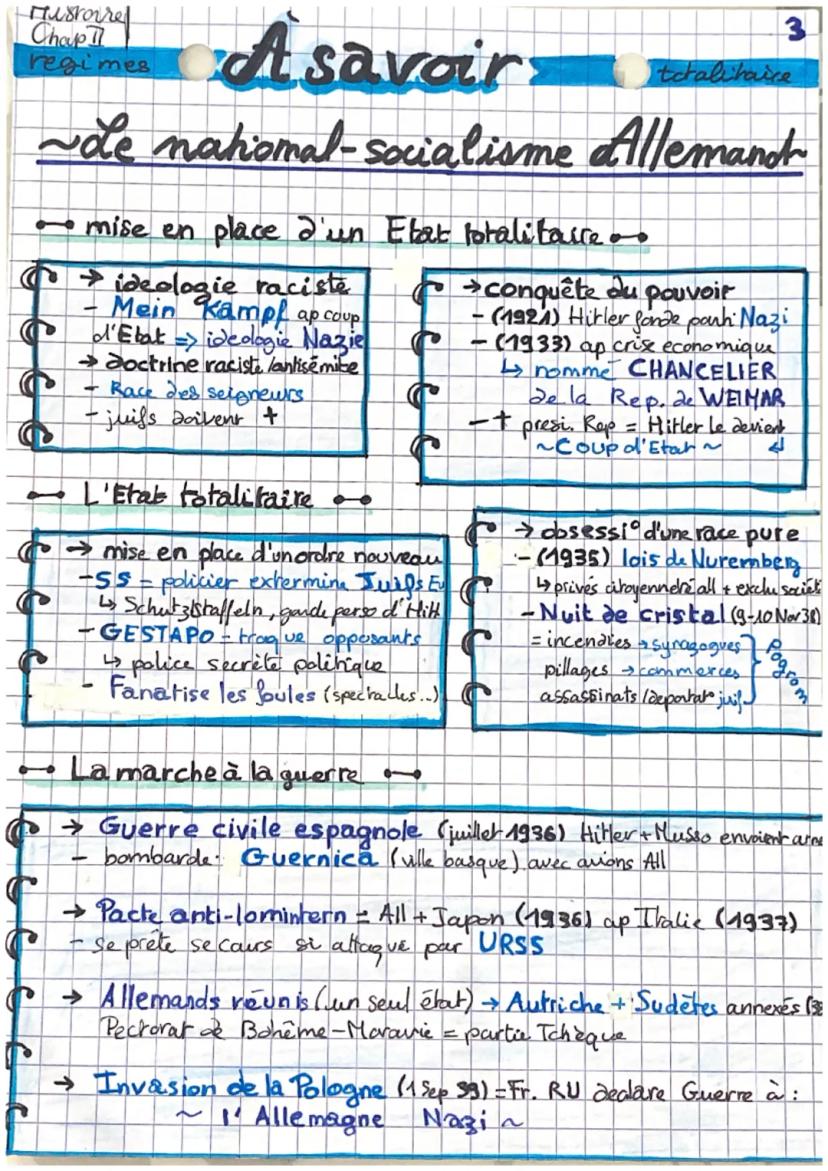 Histoire
Chap II
3
regimes
À savoir
totalitaire
~Le national-socialisme Allemand
mise en place d'un Etat totalitaire
→ ideologie raciste
- Mein Kampf ap coup
d'Etat => ideologie Nazie
→ Doctrine raciste/antisémite
- Race des seigneurs
- juifs doivent †
→ conquête du pouvoir
- (1921) Hitler fonde parti Nazi
- (1933) ap crise economique
↳ nommé CHANCELIER
de la Rep. de WEIMAR
- † presi. Rep = Hitler le devient
~Coup d'Etat~ ↲
L'Etat totalitaire
→ mise en place d'un ordre nouveau
- SS = policier extermine Juifs Eu
↳ Schutzstaffeln, garde perso d'Hitl
- GESTAPO - traque opposants
↳ police secrète politique
- Fanatise les foules (spectacles...)
→ obsessi° d'une race pure
- (1935) lois de Nuremberg
↳ privés citoyenneté all + exclu societ
- Nuit de cristal (9-10 Nov 38)
= incendies → synagogues
pillages → commerces
assassinats/deportat° juif
Pogrom
La marche à la guerre
→ Guerre civile espagnole (juillet 1936) Hitler + Musso envoient arm
- bombarde: Guernica (ville basque) avec avions All
→ Pacte anti-lomintern = All + Japon (1936) ap Italie (1937)
- se prête secours si attaqué par URSS
→ Allemands réunis (un seul état) → Autriche + Sudètes annexés (38
Pectorat de Bohême-Moravie = partie Tchèque
→ Invasion de la Pologne (1 Sep 39) = Fr. RU declare Guerre à :
~ l'Allemagne Nazi ~